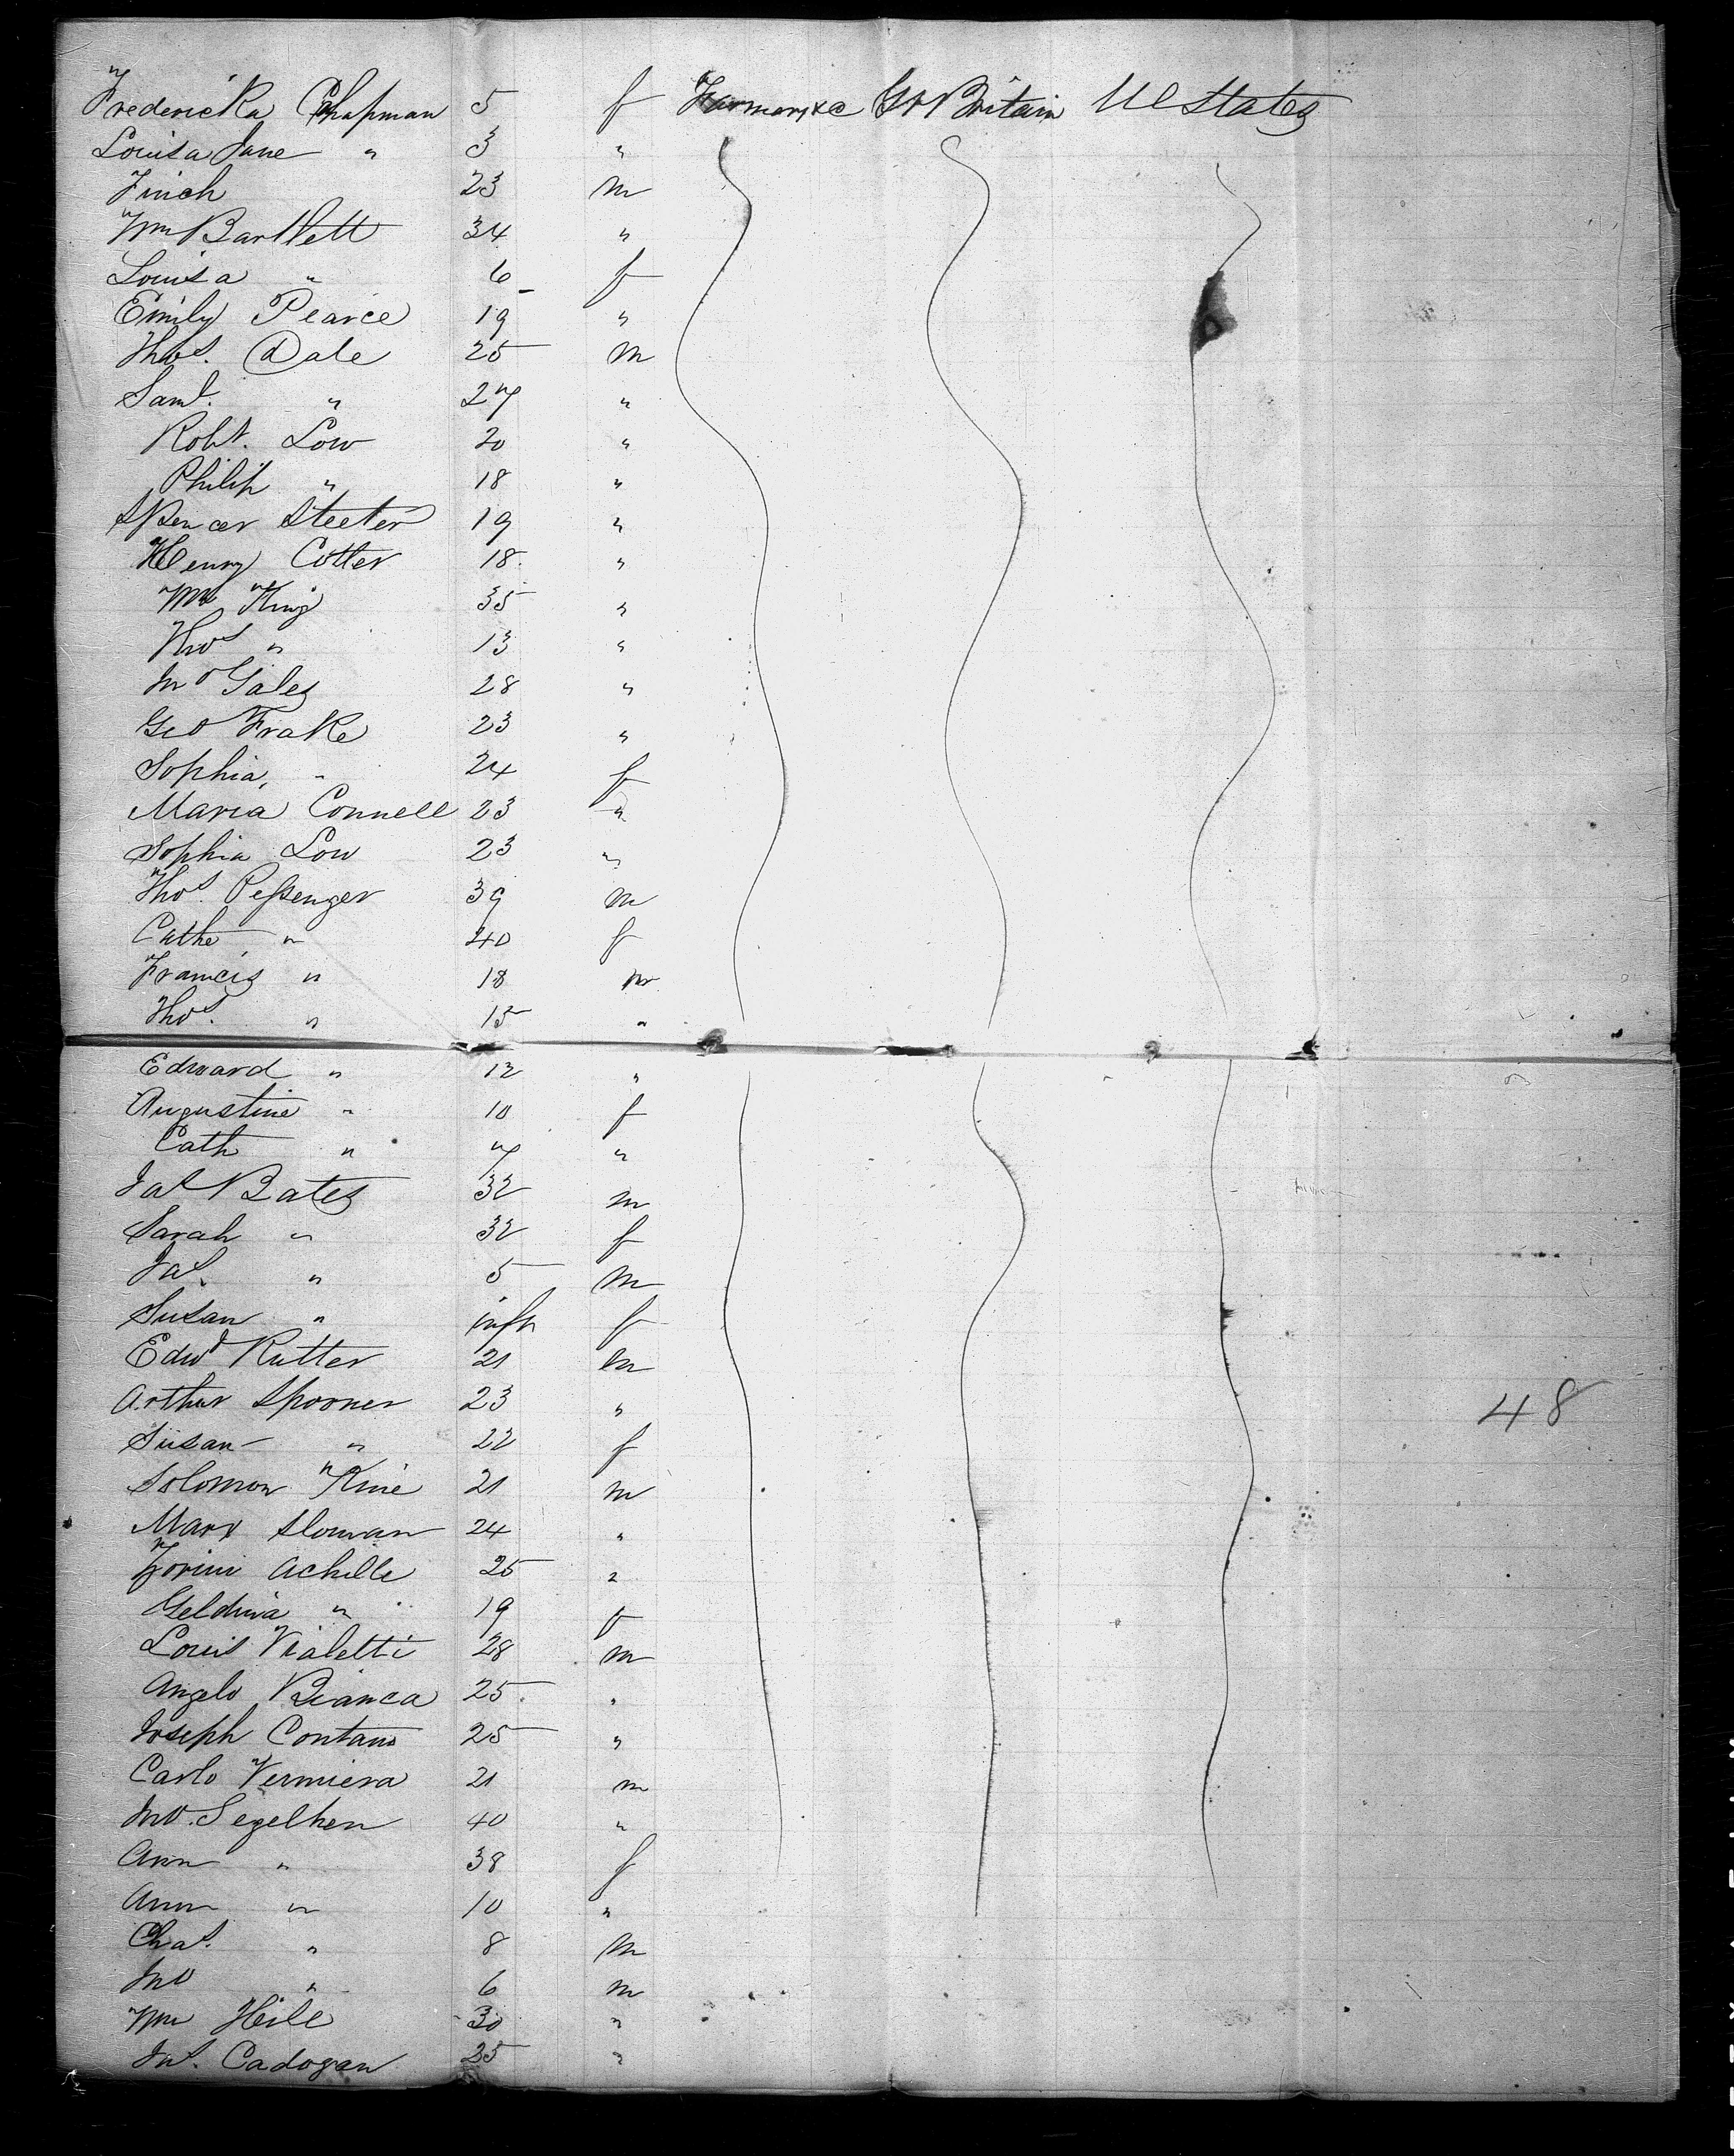 Fredericka Chapman 5 f Farmers &c Gt Britain U States
Louisa Jane " 3 "
Finch 23 m
Wm Bartlett 34 "
Louisa " 6 f
Emily Pearce 19 "
Thos. Dale 25 m
Saml. " 27 "
Robt. Low 20 "
Philip " 18 "
Spencer Steeter 19 "
Henry Cotter 18 "
Wm King 35 "
Thos " 13 "
Jno Gales 28 "
Geo Frake 23 "
Sophia " 24 f
Maria Connell 23 "
Sophia Low 23 "
Thos. Pessenger 39 m
Cathe " 40 f
Francis " 18 m
Thos. " 15 "
Edward " 12 "
Augustine " 10 f
Cath " 7 "
Jas Bates 32 m
Sarah " 32 f
Jas. " 5 m
Susan " inft f
Edwd Rutter 21 m
Arthur Spooner 23 "
48
Susan " 22 f
Solomon Kine 21 m
Marx Sloman 24 "
Achille 25 "
Geldina " 19 f
Louis Vialetti 28 m
Angelo Bianca 25 "
Joseph Contano 25 "
Carlo Vermiera 21 m
Jno. Segelhen 40 "
Ann " 38 f
Ann " 10 "
Chas. " 8 m
Jno " 6 m
Wm Heile 30 "
Cadogan 25 "